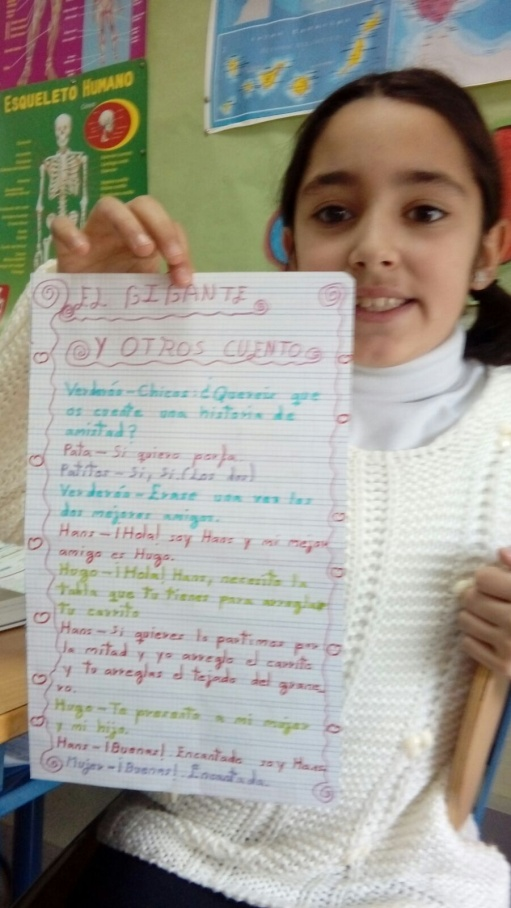 ESQUELETO HUMANO
EL GIGANTE
Y OTROS CUENTOS
Verderón-Chicos: ¿Quereis que
os cuente una historia de
amistad?
Pata-Si quiero porfa.
Patitos-Si, Si. (Los dos)
Verderón-Erase una vez los
dos mejores amigos.
Hans-¡Hola! soy Hans y mi mejor
amigo es Hugo.
Hugo-¡Hola! Hans, necesito la
tabla que tu tienes para arreglar
tu carrito
Hans-Si quieres la partimos por
la mitad y yo arreglo el carrito
y tu arreglas el tejado del grane
ro.
Hugo-Te presento a mi mujer
y mi hijo.
Hans-¡Buenas! Encantado soy Hans
Mujer-¡Buenas! Encantada.